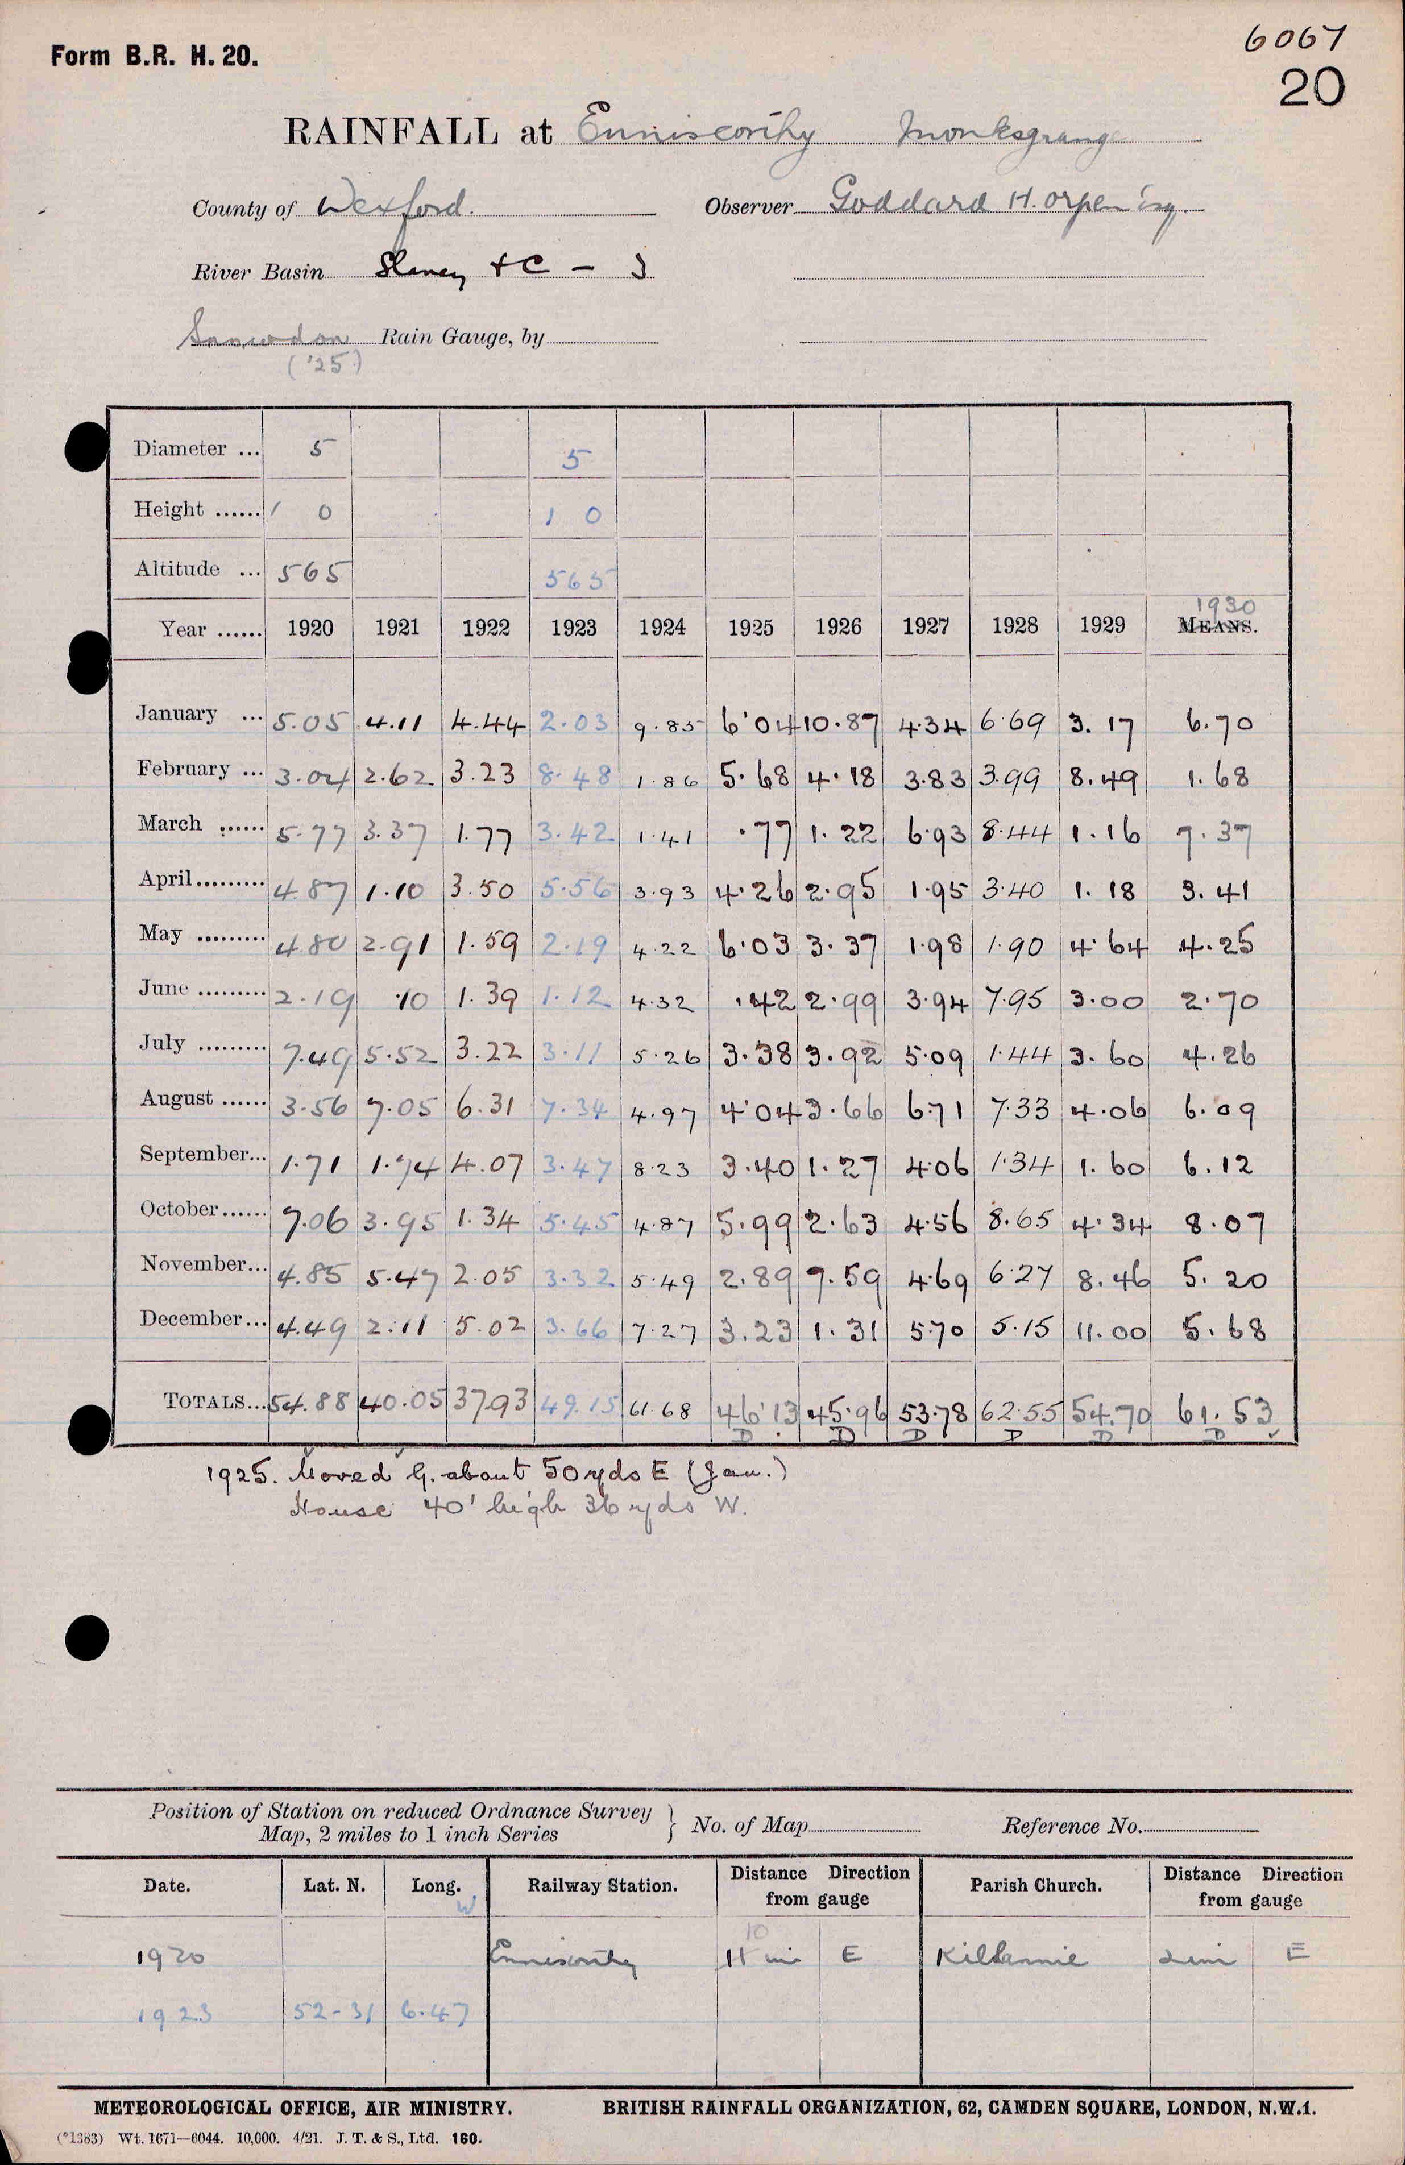 Form B.R. H. 20.
6067
20
RAINFALL at Enniscorthy Monksgrange
County of Wexford. Observer Goddard H. Orpen Esq.
River Basin Slaney + C -
Snowdon Rain Gauge, by
('25)
Diameter ... 5 5
Height ...... 1 0 1 0
Altitude ... 565 565
1930
Year ...... 1920 1921 1922 1923 1924 1925 1926 1927 1928 1929 MEANS.
January ... 5.05 4.11 4.44 2.03 9.85 6.04 10.87 4.34 6.69 3.17 6.70
February ... 3.04 2.62 3.23 8.48 1.86 5.68 4.18 3.83 3.99 8.49 1.68
March ...... 5.77 3.37 1.77 3.42 1.41 .77 1.22 6.93 8.44 1.16 7.37
April......... 4.87 1.10 3.50 5.56 3.93 4.26 2.95 1.95 3.40 1.18 3.41
May ......... 4.80 2.91 1.59 2.19 4.22 6.03 3.37 1.98 1.90 4.64 4.25
June ......... 2.19 .10 1.39 1.12 4.32 .42 2.99 3.94 7.95 3.00 2.70
July ......... 7.49 5.52 3.22 3.11 5.26 3.38 3.92 5.09 1.44 3.60 4.26
August ...... 3.56 7.05 6.31 7.34 4.97 4.04 3.66 6.71 7.33 4.06 6.09
September... 1.71 1.74 4.07 3.47 8.23 3.40 1.27 4.06 1.34 1.60 6.12
October...... 7.06 3.95 1.34 5.45 4.87 5.99 2.63 4.56 8.65 4.34 8.07
November... 4.85 5.47 2.05 3.32 5.49 2.89 7.59 4.69 6.27 8.46 5.20
December... 4.49 2.11 5.02 3.66 7.27 3.23 1.31 5.70 5.15 11.00 5.68
TOTALS... 54.88 40.05 37.93 49.15 61.68 46.13 45.96 53.78 62.55 54.70 61.53
D D D D D D
1925. Moved G. about 50 yds E (Jan.)
House 40' high 36 yds W.
Position of Station on reduced Ordnance Survey
Map, 2 miles to 1 inch Series } No. of Map Reference No.
Date. Lat. N. Long. W Railway Station. Distance Direction from gauge Parish Church. Distance Direction from gauge
10
1920 Enniscorthy 11 mi E E
1923 52-31 6.47
METEOROLOGICAL OFFICE, AIR MINISTRY. BRITISH RAINFALL ORGANIZATION, 62, CAMDEN SQUARE, LONDON, N.W.1.
(*1383) Wt. 1671—6044. 10,000. 4/21. J. T. & S., Ltd. 160.